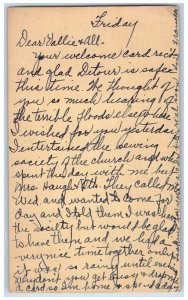 Friday
Dear Eallie & All -
Your welcome card recd
and glad Detour is safe
this time. We thought of
you so much hearing of
the terrible floods elsewhere
I wished for you yesterday
I entertained the sewing
society of the church and who
spent the day with me but
Mrs Haugh & Etta They called me
Wed and wanted to come for
day and I told them I was having
the society but would be glad
to have them and we had a
very nice time together only
it was so raining until every
Why don't you get busy & drop
a card so I'm home to spend today